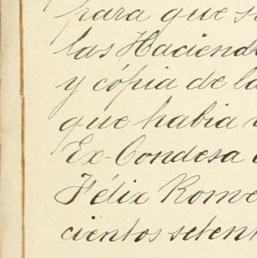 para que s
las Haciend
y cópia de la
que habia
Ex-Condesa
Félix Rome
cientos setent